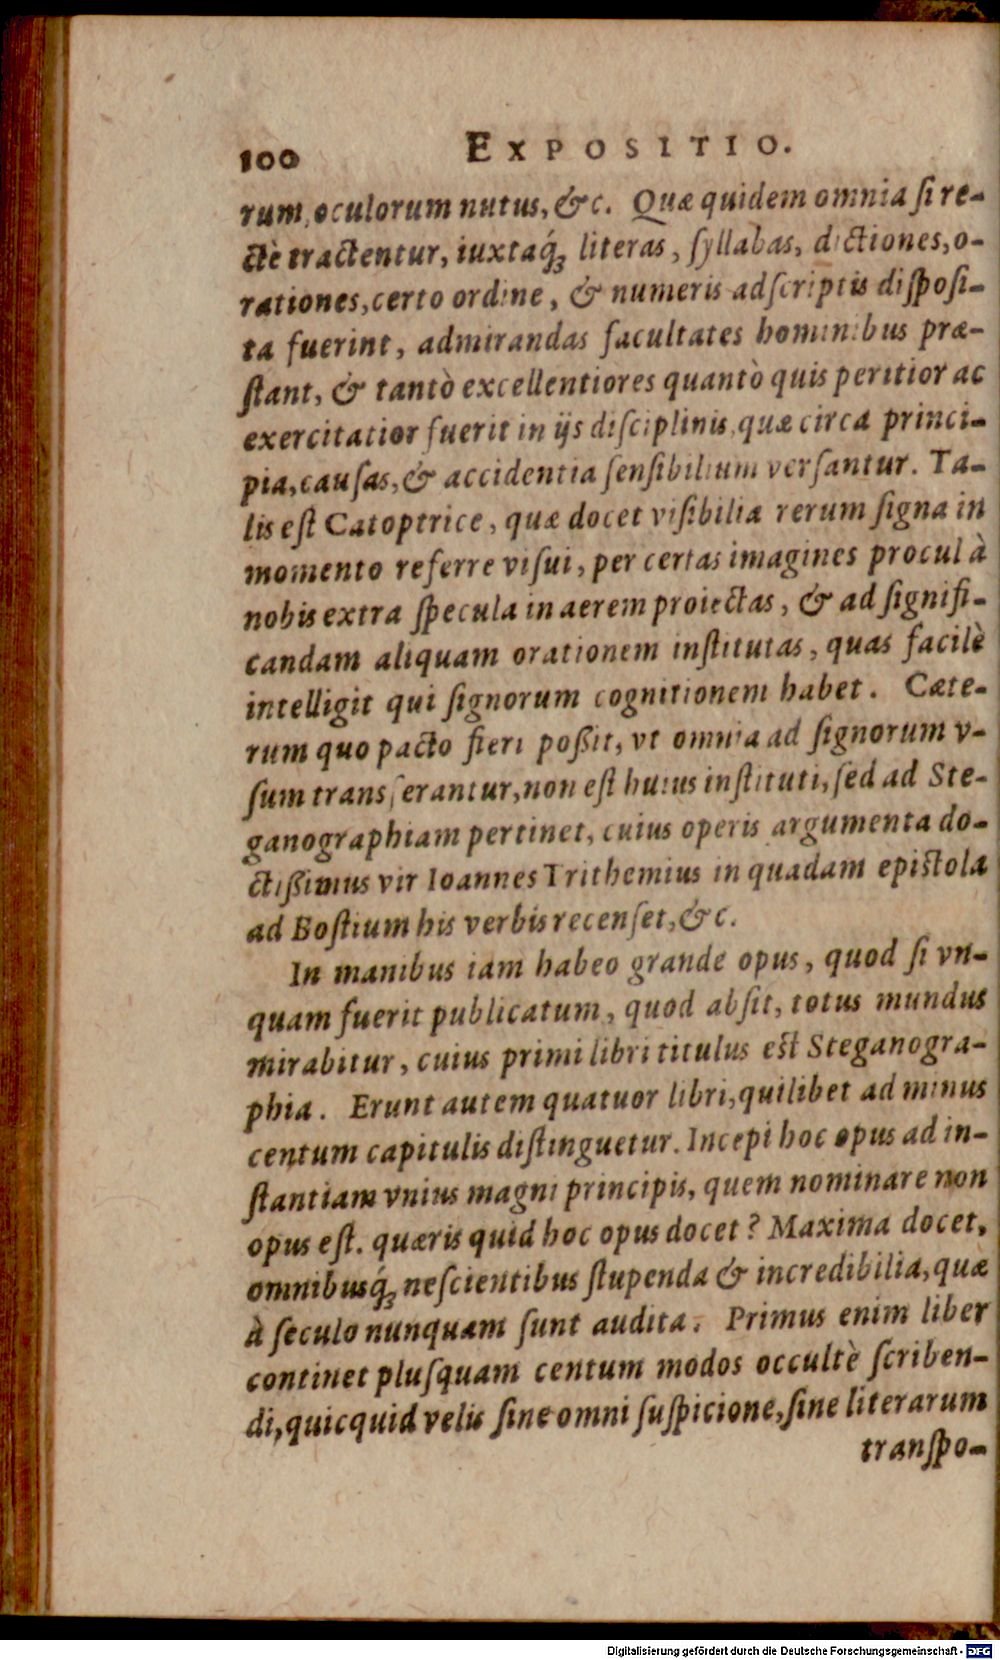 100 EXPOSITIO.
rum, oculorum nutus, &c. Quæ quidem omnia ſi re-
ctè tractentur, iuxtaq́ꝫ literas, ſyllabas, dictiones, o-
rationes, certo ordine, & numeris adſcriptis diſpoſi-
ta fuerint, admirandas facultates hominibus præ-
ſtant, & tantò excellentiores quantò quis peritior ac
exercitatior fuerit in ijs diſciplinis, quæ circa princi-
pia, cauſas, & accidentia ſenſibilium verſantur. Ta-
lis eſt Catoptrice, quæ docet viſibilia rerum ſigna in
momento referre viſui, per certas imagines procul à
nobis extra ſpecula in aerem proiectas, & ad ſignifi-
candam aliquam orationem inſtitutas, quas facilè
intelligit qui ſignorum cognitionem habet. Cæte-
rum quo pacto fieri poßit, vt omnia ad ſignorum v-
ſum transferantur, non eſt huius inſtituti, ſed ad Ste-
ganographiam pertinet, cuius operis argumenta do-
ctißimus vir Ioannes Trithemius in quadam epiſtola
ad Boſtium his verbis recenſet, &c.
In manibus iam habeo grande opus, quod ſi vn-
quam fuerit publicatum, quod abſit, totus mundus
mirabitur, cuius primi libri titulus eſt Steganogra-
phia. Erunt autem quatuor libri, quilibet ad minus
centum capitulis diſtinguetur. Incepi hoc opus ad in-
ſtantiam vnius magni principis, quem nominare non
opus eſt. quæris quid hoc opus docet? Maxima docet,
omnibusq́ꝫ neſcientibus ſtupenda & incredibilia, quæ
à ſeculo nunquam ſunt audita. Primus enim liber
continet pluſquam centum modos occultè ſcriben-
di, quicquid velis ſine omni ſuſpicione, ſine literarum
tranſpo-
Digitalisierung gefördert durch die Deutsche Forschungsgemeinschaft - DFG